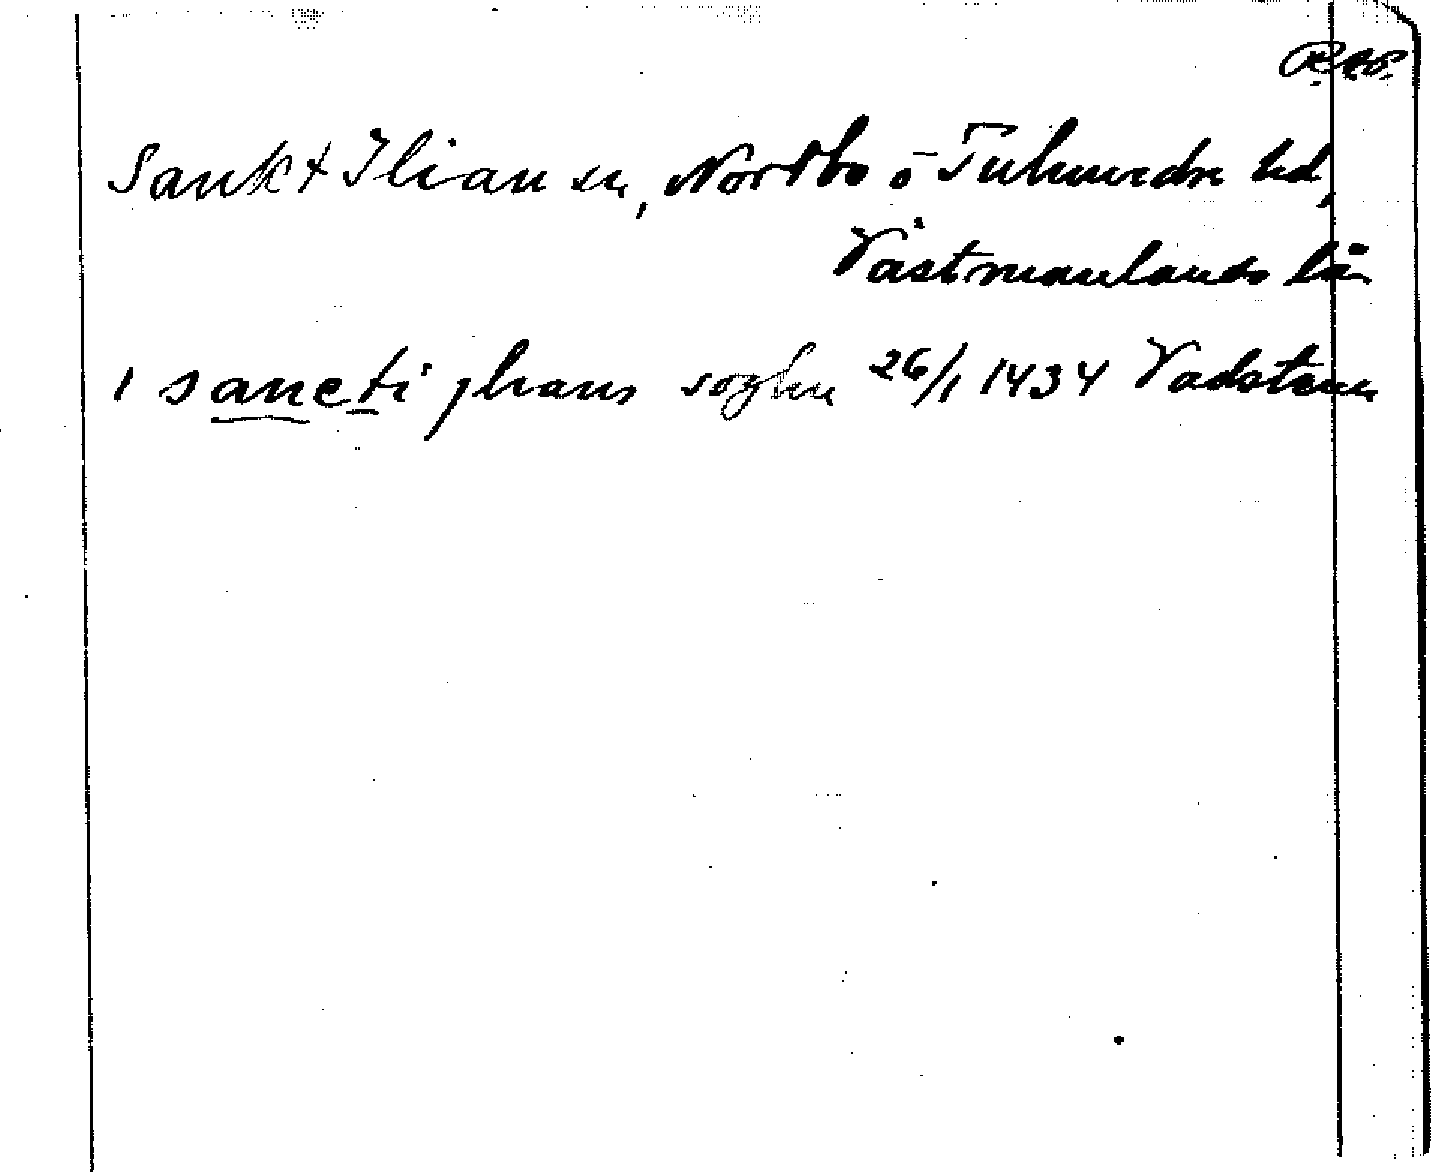 RAP.
Sankt Ilian sn, Norrbo o Tuhundra hd,
Västmanlands län
i sancti jlians soghn 26/1 1434 Vadstena